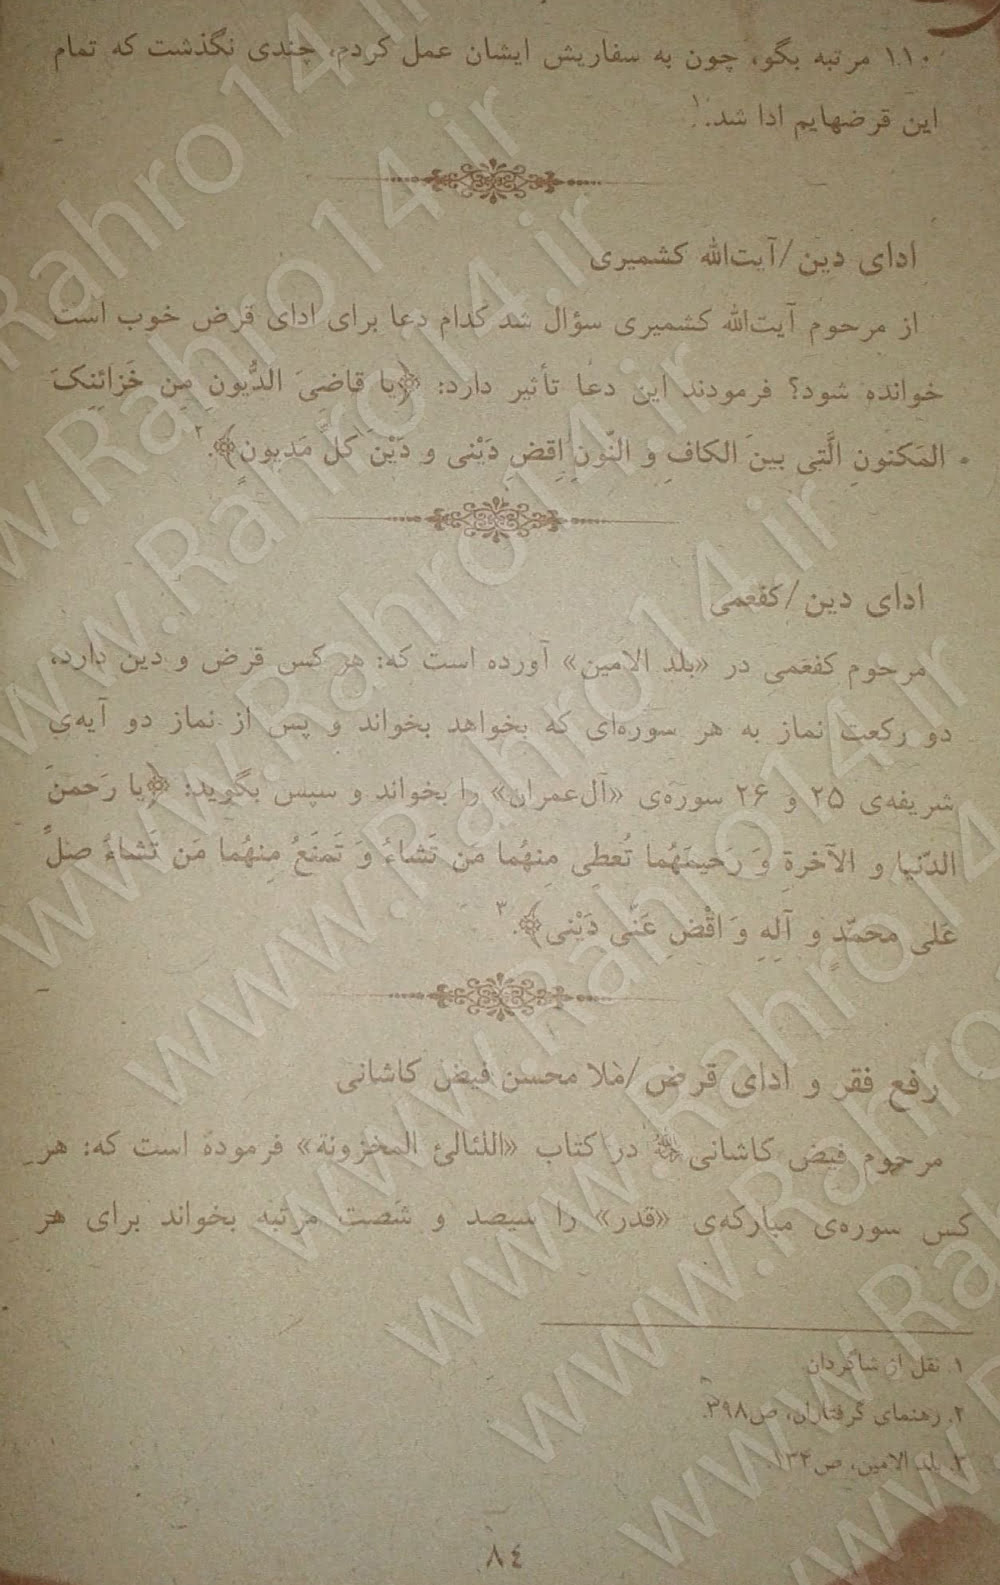 ۱۱۰ مرتبه بگو، چون به سفاریش ایشان عمل کردم، چندی نگذشت که تمام
این قرضهایم ادا شد.۱
ادای دین/آیت‌الله کشمیری
از مرحوم آیت‌الله کشمیری سؤال شد کدام دعا برای ادای قرض خوب است
خوانده شود؟ فرمودند این دعا تأثیر دارد: ﴿یا قاضِیَ الدُّیونِ مِن خَزائِنِکَ
المَکنونِ الَّتی بینَ الکافِ و النّونِ اِقضِ دَیْنی و دَیْنَ کلِّ مَدیونٍ﴾.۲
ادای دین/کفعمی
مرحوم کفعمی در «بلد الامین» آورده است که: هر کس قرض و دین دارد،
دو رکعت نماز به هر سوره‌ای که بخواهد بخواند و پس از نماز دو آیه‌ی
شریفه‌ی ۲۵ و ۲۶ سوره‌ی «آل‌عمران» را بخواند و سپس بگوید: ﴿یا رَحمنَ
الدّنیا و الآخرةِ وَ رَحیمَهُما تُعطِی مِنهُما مَن تَشاءُ وَ تَمنَعُ مِنهُما مَن تَشاءُ صَلِّ
عَلی محمّدٍ و آلِهِ وَ اقْضِ عَنّی دَیْنی﴾.۳
رفع فقر و ادای قرض/ملا محسن فیض کاشانی
مرحوم فیض کاشانی در کتاب «اللئالئ المخزونة» فرموده است که: هر
کس سوره‌ی مبارکه‌ی «قدر» را سیصد و شصت مرتبه بخواند برای هر
۱. نقل از شاگردان
۲. رهنمای گرفتاران، ص۳۹۸.
۳. بلد الامین، ص۱۳۴.
۸٤
www.Rahro14.ir